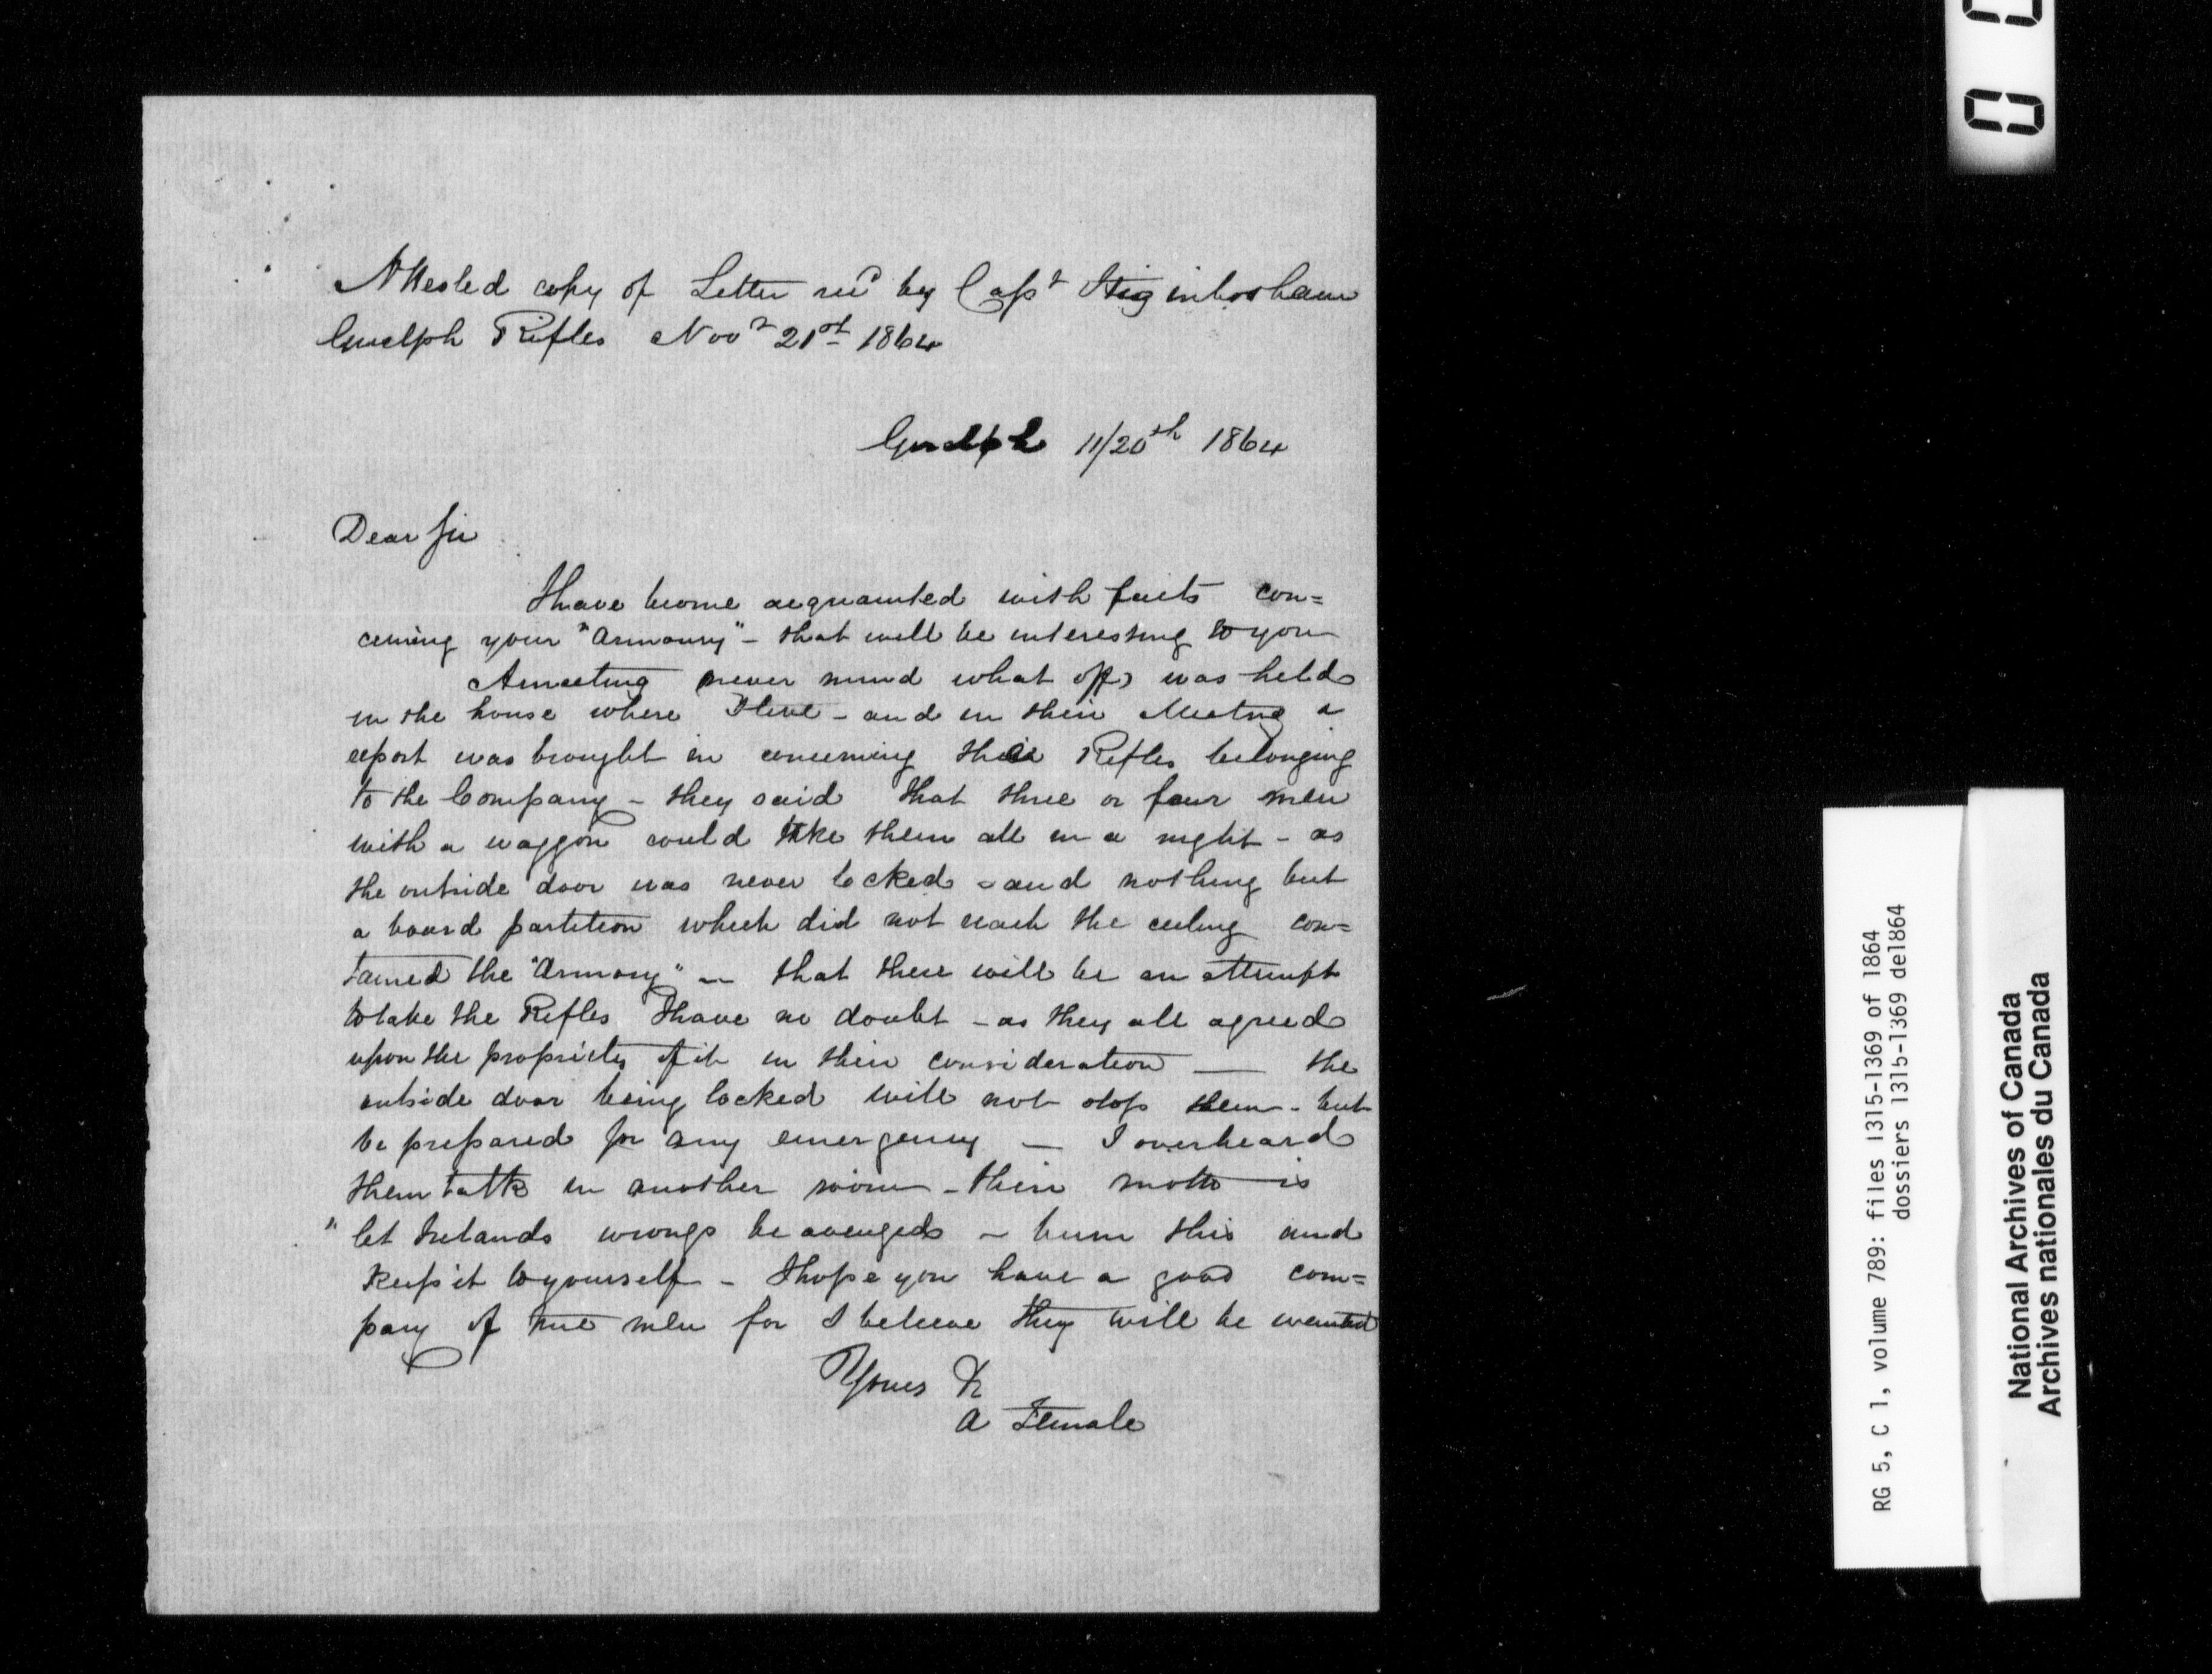 Attested copy of Letter recd by Capt Higinbotham
Guelph Rifles Novr 21st 1864
Guelph 11/20th 1864
Dear Sir
I have become acquainted with facts con=
cerning your "Armoury" - that will be interesting to you
A meeting never mind what of, was held
in the house where I live - and in their Meeting a
report was brought in concerning their Rifles belonging
to the Company - they said that three or four men
with a waggon could take them all in a night - as
the outside door was never locked - and nothing but
a board partition which did not reach the ceiling con=
tained the "Armory" - that there will be an attempt
to take the Rifles I have no doubt - as they all agreed
upon the propriety of it in their consideration — the
outside door being locked will not stop them - but
be prepared for any emergency — I overheard
them talk in another room - their motto is
" let Irelands wrongs be avenged - burn this and
keep it to yourself - I hope you have a good com=
pany of true men for I believe they will be wanted
Yours &
A Female
RG 5, C 1, volume 789: files 1315-1369 of 1864
dossiers 1315-1369 de1864
National Archives of Canada
Archives nationales du Canada